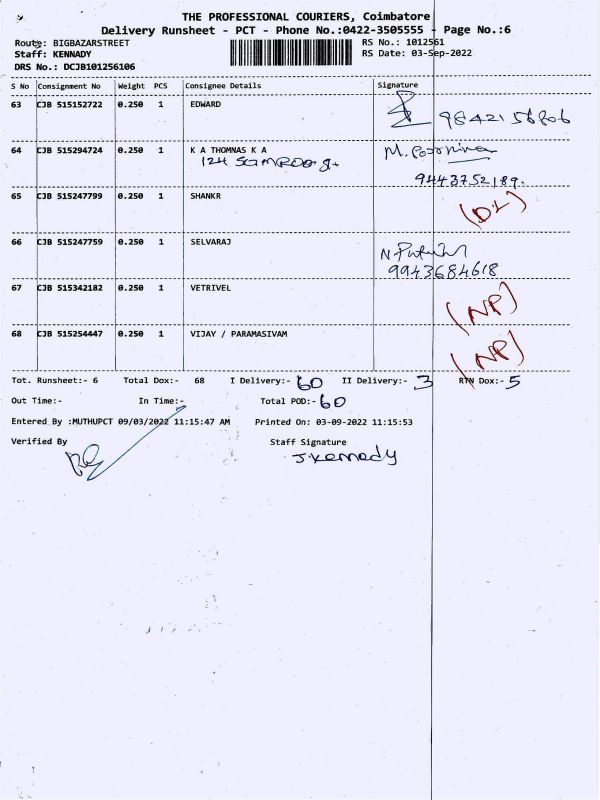 THE PROFESSIONAL COURIERS, Coimbatore
Delivery Runsheet - PCT - Phone No.:0422-3505555 - Page No.:6
Route: BIGBAZARSTREET RS No.: 1012561
Staff: KENNADY RS Date: 03-Sep-2022
DRS No.: DCJB101256106
S No Consignment No Weight PCS Consignee Details Signature
63 CJB 515152722 0.250 1 EDWARD
9842156806
64 CJB 515294724 0.250 1 K A THOMNAS K A M. Poornima
124
9443752189.
65 CJB 515247799 0.250 1 SHANKR (DL)
66 CJB 515247759 0.250 1 SELVARAJ
9943684618
67 CJB 515342182 0.250 1 VETRIVEL (NP)
68 CJB 515254447 0.250 1 VIJAY / PARAMASIVAM (NP)
Tot. Runsheet:- 6 Total Dox:- 68 I Delivery:- 60 II Delivery:- 3 RTN Dox:- 5
Out Time:- In Time:- Total POD:- 60
Entered By :MUTHUPCT 09/03/2022 11:15:47 AM Printed On: 03-09-2022 11:15:53
Verified By Staff Signature
J. Kennady